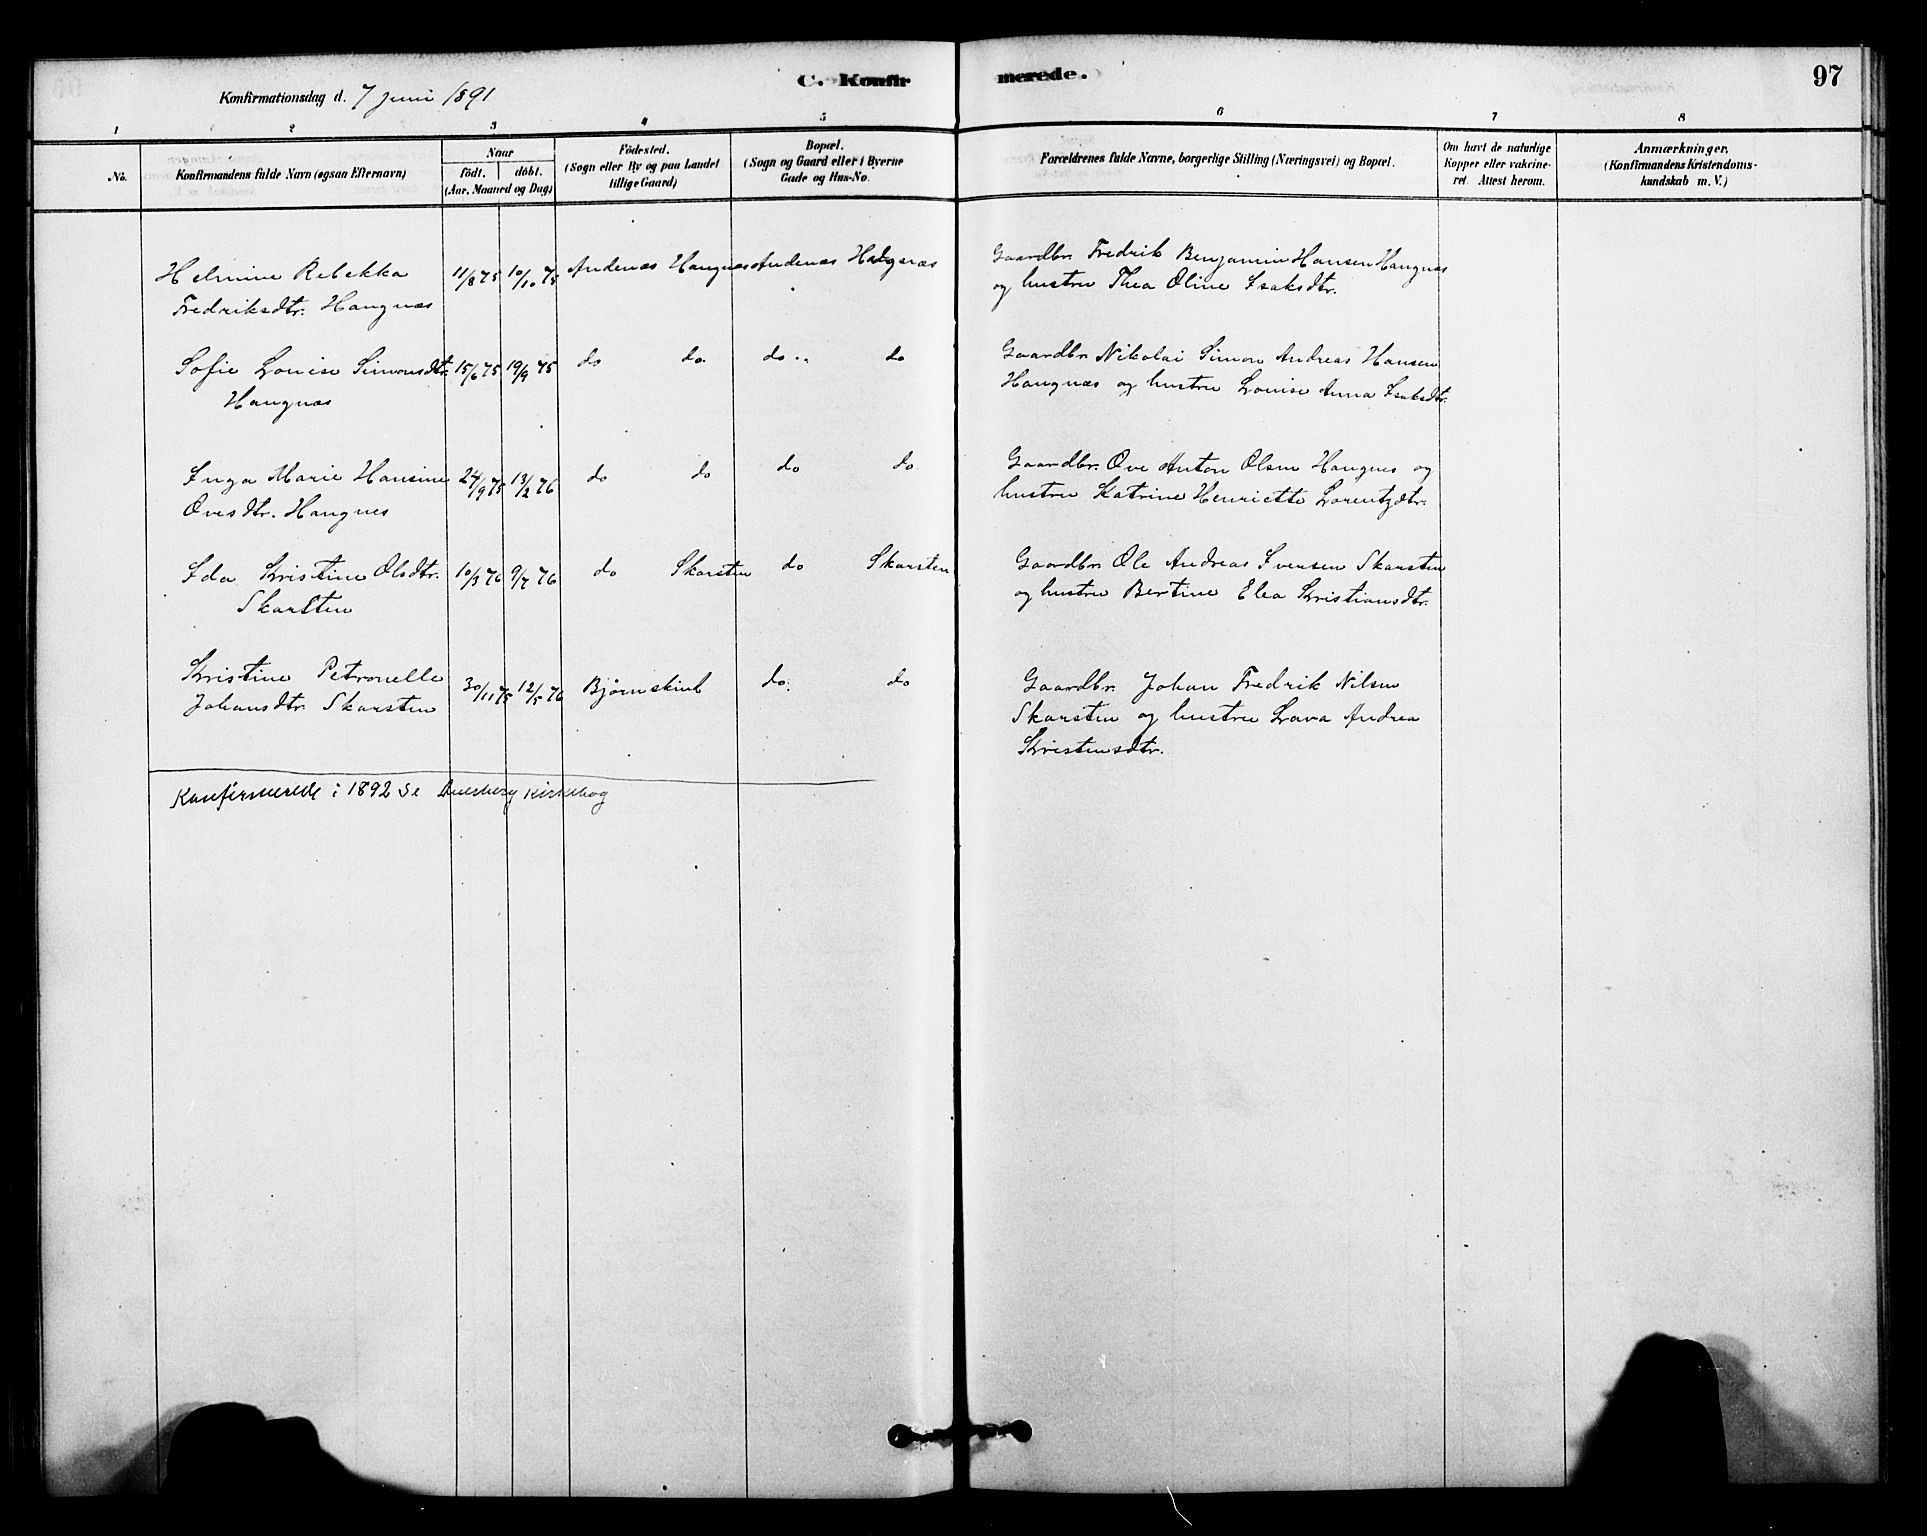 C. Konfirmerede.
97
Konfirmationsdag d. 7 juni 1891
1 2 3 4 5 6 7 8
No.
Konfirmandens fulde Navn (ogsaa Efternavn)
Naar
födt. döbt.
(Aar, Maaned og Dag)
Födested.
(Sogn eller By og paa Landet
tillige Gaard)
Bopæl.
(Sogn og Gaard eller i Byerne
Gade og Hus-No.
Forældrenes fulde Navne, borgerlige Stilling (Næringsvei) og Bopæl.
Om havt de naturlige
Kopper eller vakcine-
ret. Attest herom.
Anmærkninger.
(Konfirmandens Kristendoms-
kundskab m. V.)
Helmine Rebekka 11/8 75 10/10 75 Andenæs Haugnæs Andenæs Haugnæs Gaardbr. Fredrik Benjamin Hansen Haugnæs
Fredriksdtr. Haugnæs og hustru Thea Oline Isaksdtr.
Sofie Louise Simonsdtr. 15/6 75 19/9 75 do do. do do Gaardbr. Nikolai Simon Andreas Hansen
Haugnæs Haugnæs og hustru Louise Anna Isaksdtr.
Inga Marie Hansine 24/9 75 13/2 76 do do do do Gaardbr. Ove Anton Olsen Haugnes og
Ovesdtr. Haugnes hustru Katrine Henriette Lorentzdtr.
Ida Kristine Olsdtr. 10/3 76 9/7 76 do Skarsten do Skarsten Gaardbr. Ole Andreas Iversen Skarsten
Skarsten og hustru Bertine Elea Kristiansdtr.
Kristine Petronelle 30/11 75 12/5 76 Bjørnskind do. do Gaardbr. Johan Fredrik Nilsen
Johansdtr. Skarsten Skarsten og hustru Lava Andrea
Kristensdtr.
Konfirmerede i 1892 se Dverberg kirkebog